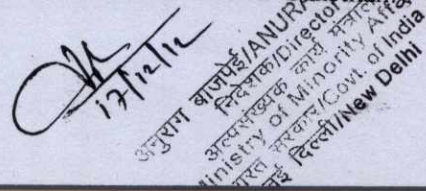 17/12/12
अनुराग बाजपेई/ANURA
निदेशक/Director
अल्पसंख्यक कार्य मंत्राल
Ministry of Minority Affa
भारत सरकार/Govt. of India
नई दिल्ली/New Delhi